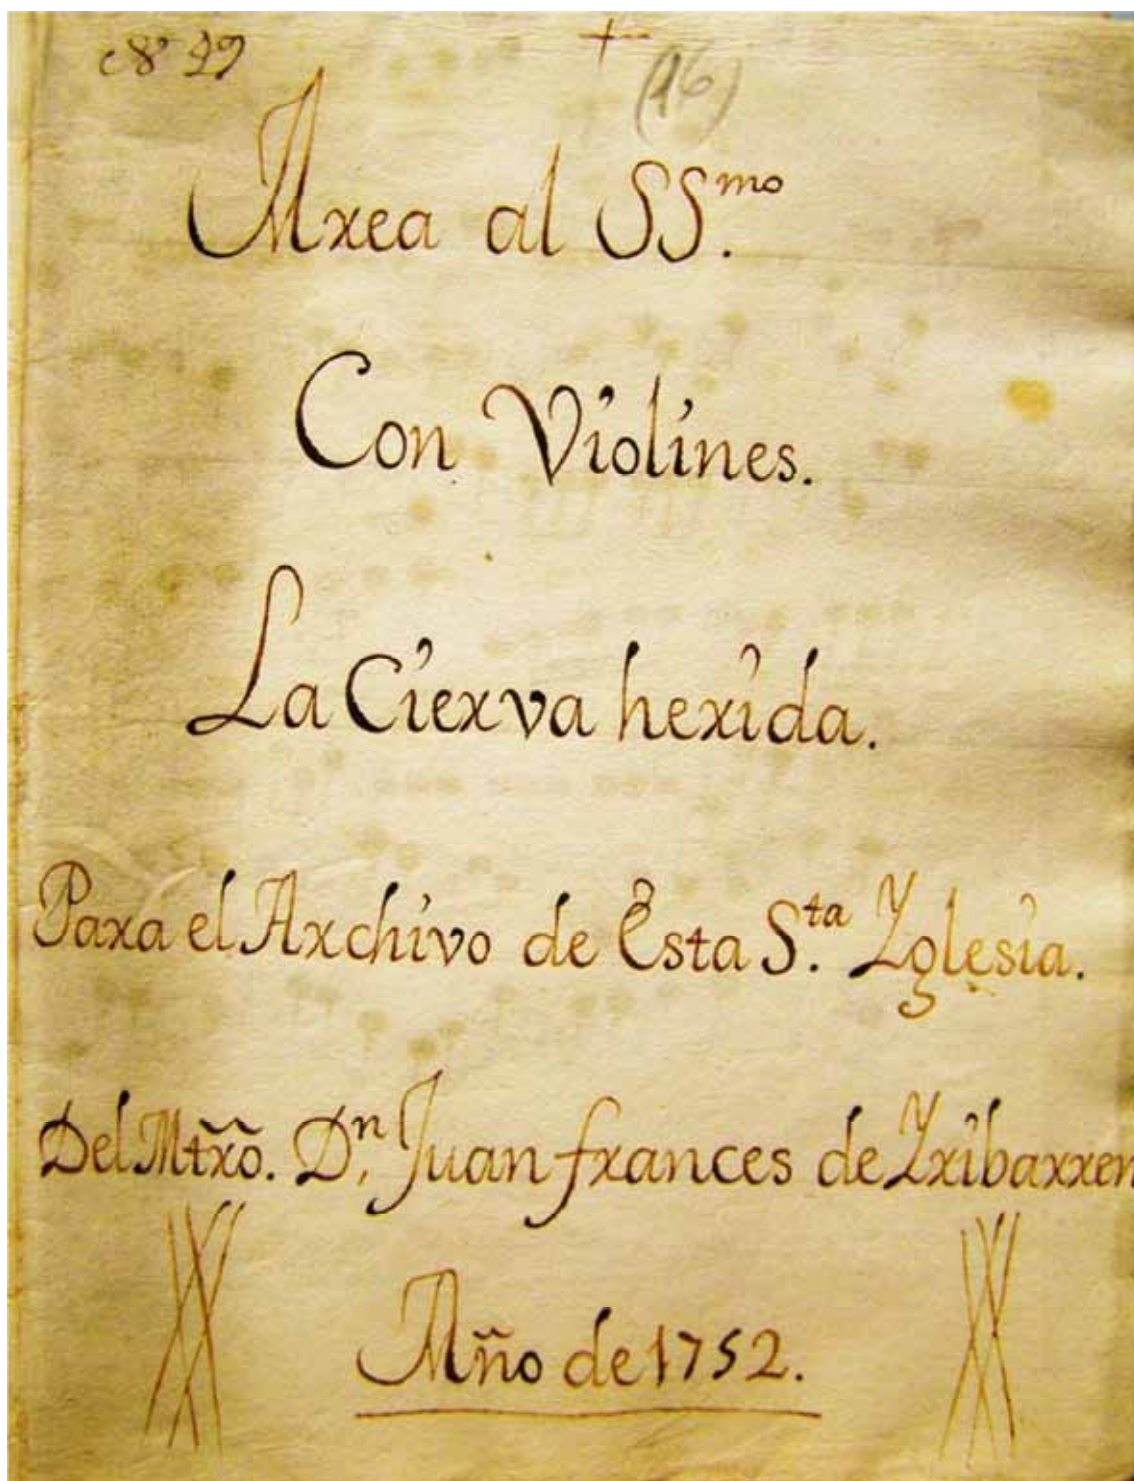 Nº 29
(16)
Area al SS.mo
Con Violines.
La Cierva herida.
Para el Archivo de Esta S.ta Yglesia.
Del Mtrõ. D.n Juan frances de Yribarren
Año de 1752.